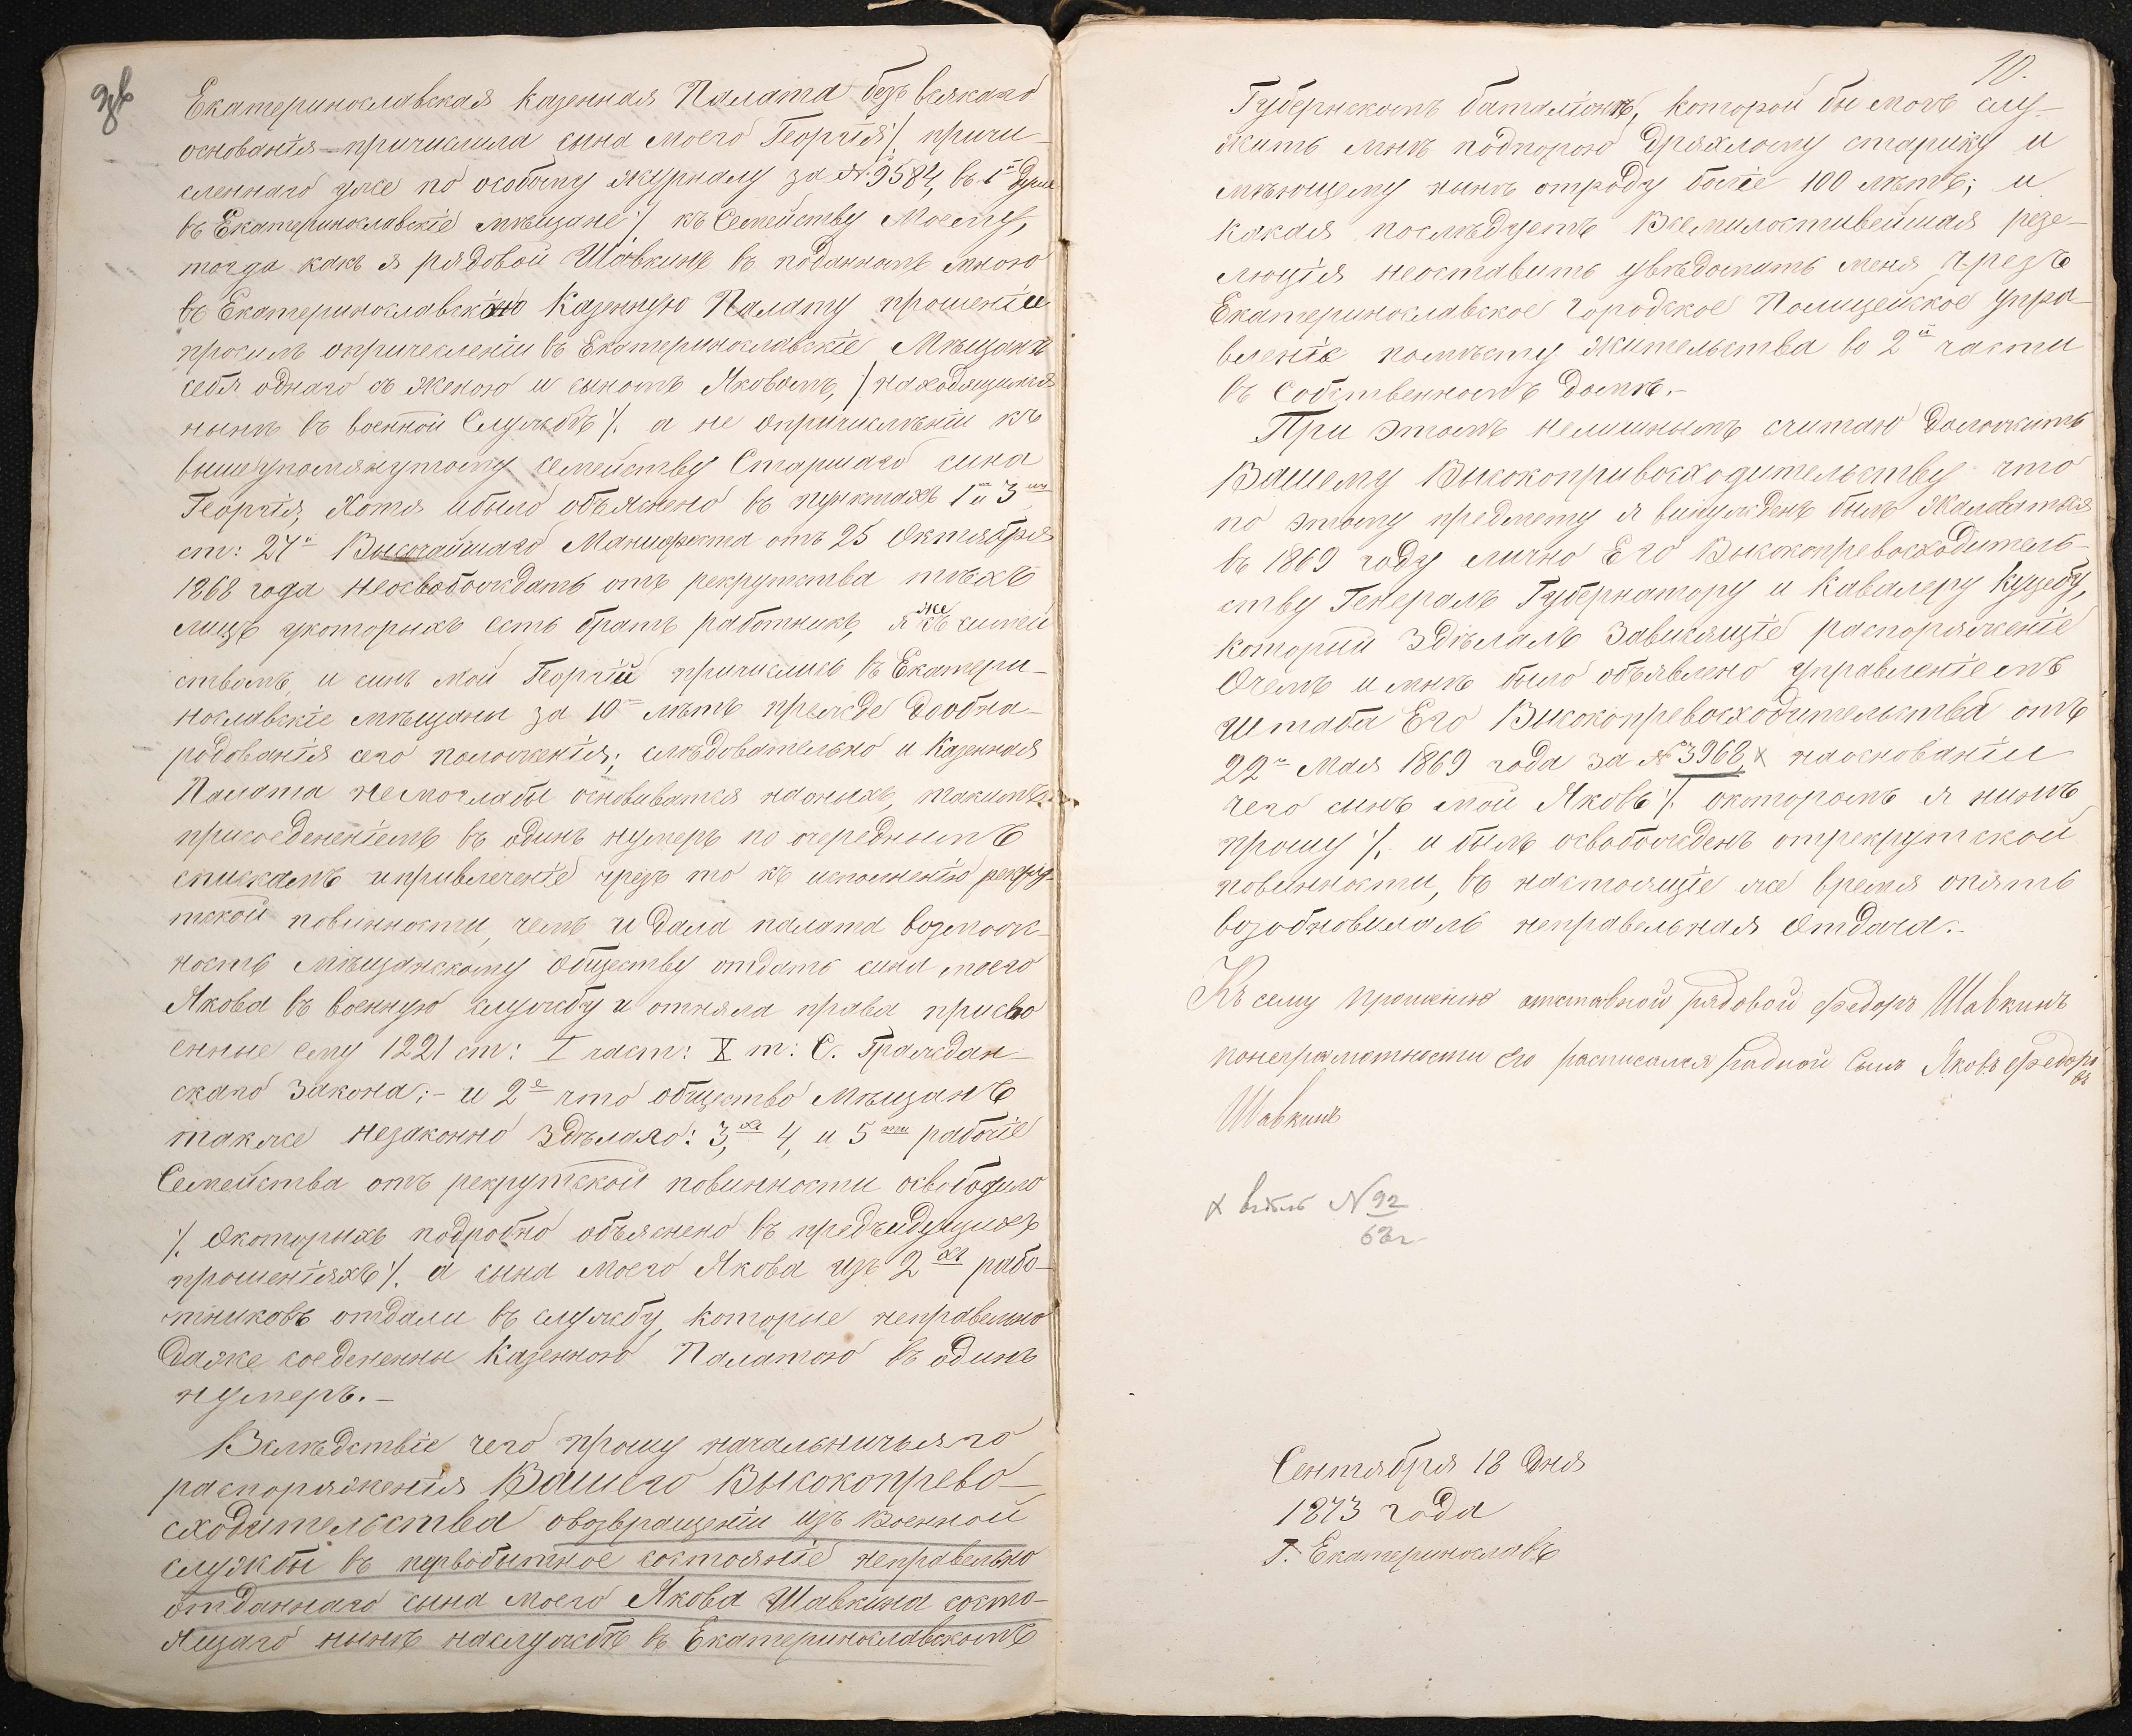 Екатеринославская Казенная Палата безъ всякаго
основанія причислила сына моего Георгія /. причи-
сленнаго уже по особому журналу за № 9584, въ 1й Думе
въ Екатеринославскіе мѣщане /. къ Семейству Моему,
тогда какъ я рядовой Шавкинъ въ поданномъ мною
въ Екатеринославскую Казенную Палату прошеніи
просилъ опричесленіи въ Екатеринославскіе Мѣщанъ
себя однаго съ женою и сыномъ Яковомъ, /находящимся
нынѣ въ военной Службѣ /. а не опричисленіи къ
вышеупомянутому семейству Старшаго сына
Георгія, Хотя ибыло объяснено въ пунктахъ 1 и 3
ст: 24й Высочайшаго Манифеста отъ 25 Октября
1868 года неосвобождать отъ рекрутства тѣхъ
лицъ укоторыхъ есть братъ работникъ,
ствомъ, и сынъ мой Георгій причислись въ Екатери-
нославскіе мѣщаны за 10 лѣтъ прежде дообна-
родованія сего положенія; слѣдовательно и Казенная
Палата немоглабы основыватся наоныхъ, такимъ
присоедененіемъ въ одинъ нумеръ по очереднымъ
спискамъ ипривлеченіе чрезъ то къ исполненію рекру-
тской повинности, чемъ и дала палата возмож-
ность мѣщанскому обществу отдать сына моего
Якова въ военную службу и отняла права присво
енные ему 1221 ст: I част: X т: С. Граждан-
скаго Закона;- и 2е что общество мѣщанъ
также незаконно здѣлало: 3,хъ 4, и 5ти рабочіе
Семейства отъ рекрутской повинности освободило
/. Окоторыхъ подробно объяснено въ предъидущихъ
прошеніяхъ /. а сына моего Якова изъ 2хъ рабо-
тниковъ отдали въ службу, которые неправельно
даже соеденены Казенною Палатою въ одинъ
нумеръ.-
Вслѣдствіе чего прошу начальничьяго
распоряженія Вашего Высокопрево-
сходительства овозвращеніи изъ военной
службы въ первобытное состояніе неправельно
отданнаго сына моего Якова Шавкина состо-
ящаго нынѣ наслужбѣ въ Екатеринославскомъ
10.
Губернскомъ баталіонѣ, которой бы могъ слу-
жить мнѣ подпорою дряхлому старику и
мѣющему нынѣ отроду боліе 100 лѣтъ; и
какая послѣдуетъ Всемилостивейшая резо-
люція неоставить увѣдомить меня чрезъ
Екатеринославское городское Полицейское упра-
вленіе помѣсту жительства во 2й части
въ собственномъ домѣ.-
При этомъ нелишнымъ считаю доложить
Вашему Высокопривосходительству что
по этому предмету я вынужденъ былъ жаловатся
въ 1869 году лично Его Высокопревосходитель-
ству Генералъ Губернатору и Кавалеру Куцебу,
который здѣлалъ зависящіе распоряженіе
Очемъ и мнѣ было объявлено Управленіемъ
Штаба Его Высокопревосходительства отъ
22 Мая 1869 года за № 3968 х наоснованіи
чего сынъ мой Яковъ /. окоторомъ я нынѣ
прошу /. и былъ освобожденъ отрекрутской
повинности, въ настоящіе же время опять
возобновилась неправельная отдача.-
Къ сему прошенію отставной рядовой Федоръ Шавкинъ
понеграмотности его росписался родной Сынъ Яковъ Федоро
въ
Шавкинъ
х
№ 92
Сентября 18 дня
1873 года
Г. Екатеринославъ